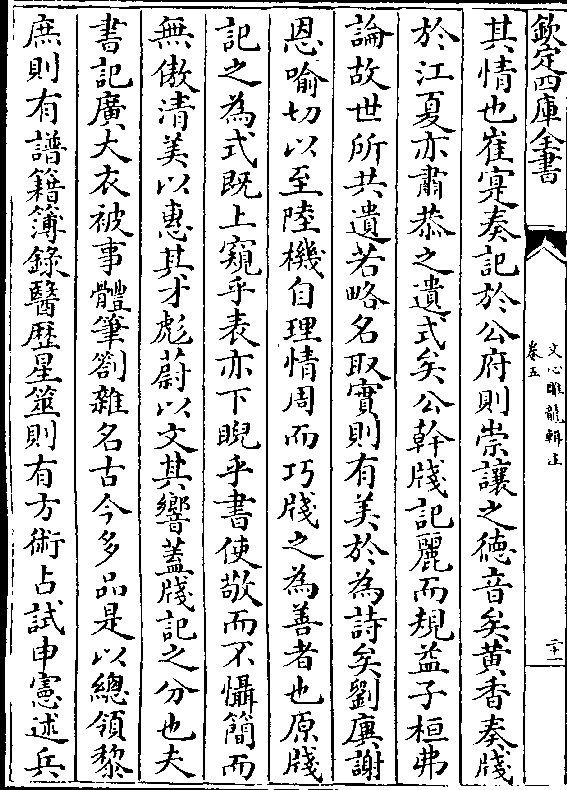 欽定四庫全書
文心雕龍輯注
卷五
二十一
其情也崔寔奏記於公府則崇讓之德音矣黄香奏牋
於江夏亦肅恭之遺式矣公幹牋記麗而規益子桓弗
論故世所共遺若略名取實則有美於為詩矣劉廙謝
恩喻切以至陸機自理情周而巧牋之為善者也原牋
記之為式既上窺乎表亦下睨乎書使敬而不懾簡而
無傲清美以惠其才彪蔚以文其響蓋牋記之分也夫
書記廣大衣被事體筆劄雜名古今多品是以總領黎
庶則有譜籍簿錄醫歴星筮則有方術占試申憲述兵